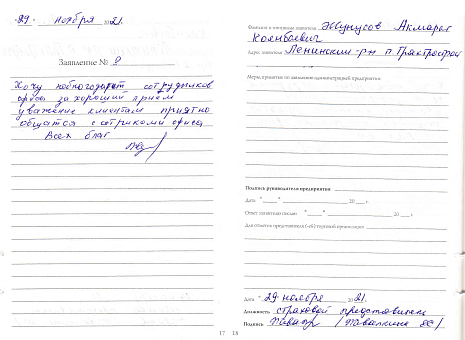 "29" ноября 2021.
Заявление № 9
Хочу поблагодарить сотрудников
офиса за хороший приём
уважение клиентам приятно
общатся с сотриками офиса
Всех благ
Фамилия и инициалы заявителя Жунусов Акмарал
Адрес заявителя Ленинский р-н п. Тракторострой
Меры, принятые по заявлению администрацией предприятия:
Подпись руководителя предприятия
Дата "___" 20 г.
Ответ заявителю послан "___" 20 г.
Для отметок представителя (-ей) торговой организации
Дата "29" ноября 2021.
Должность страховой представитель
Подпись
17 18